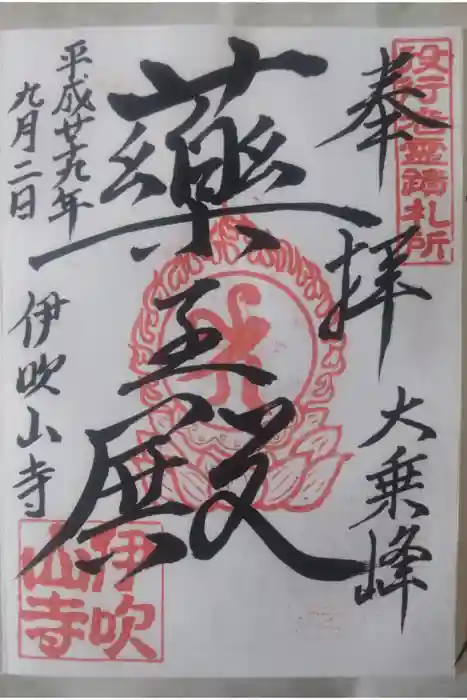 役行者霊蹟札所
奉拝
大乗峰
薬王殿
平成廿九年
九月二日
伊吹山寺
伊吹
山寺